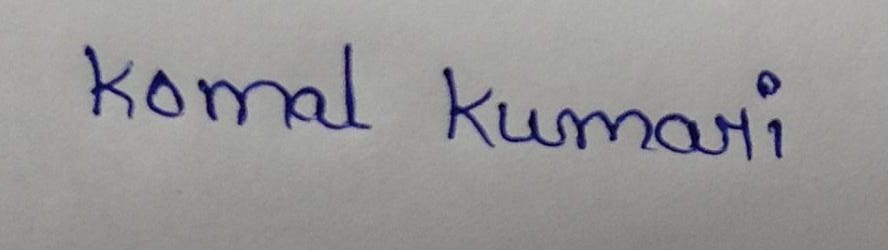 Komal Kumari